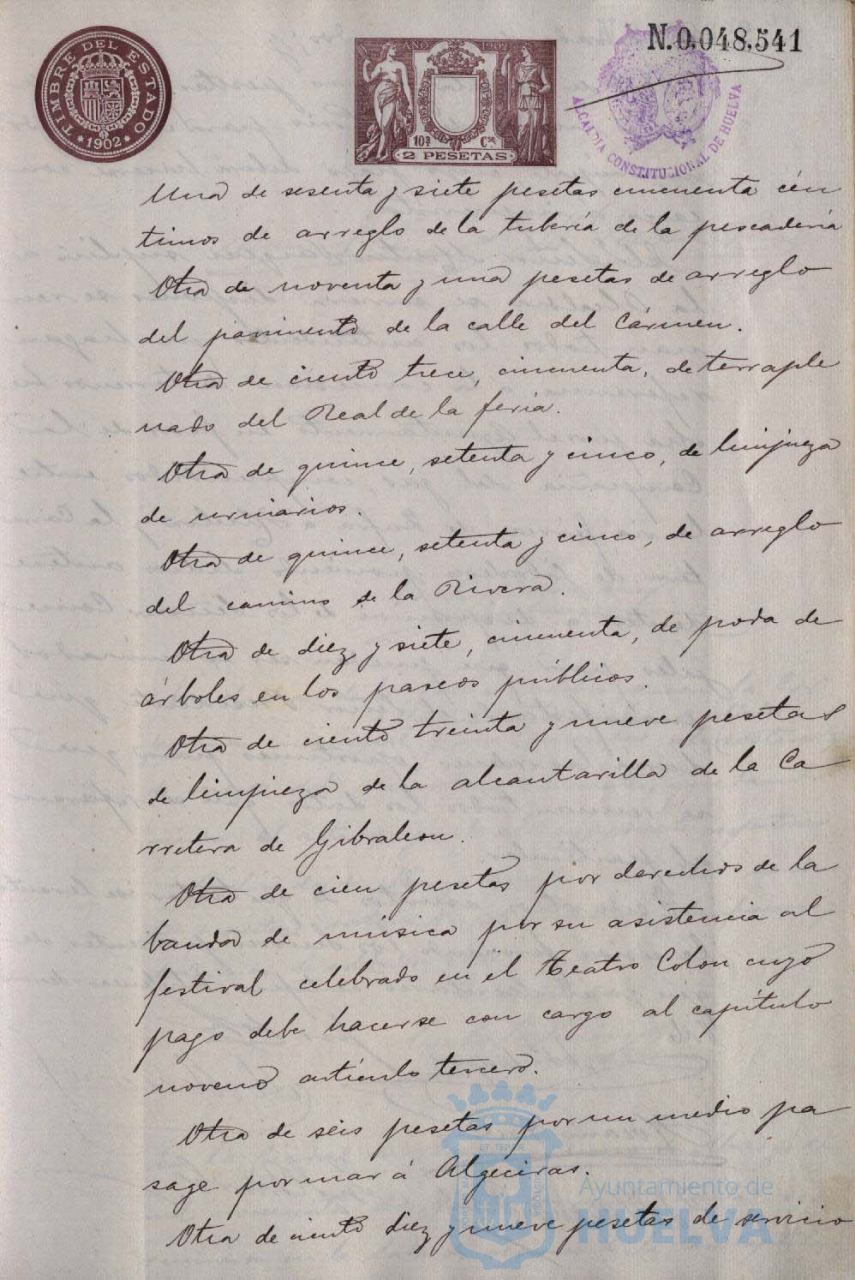 N.0.048.541
TIMBRE DEL ESTADO
*1902*
AÑO 1902
10ª Cse
2 PESETAS
ALCALDIA CONSTITUCIONAL DE HUELVA
Una de sesenta y siete pesetas cincuenta cén
timos de arreglo de la tubería de la pescadería
Otra de noventa y una pesetas de arreglo
del pavimento de la calle del Cármen.
Otra de ciento trece, cincuenta, de terraple
nado del Real de la feria.
Otra de quince, setenta y cinco, de limpieza
de urinarios.
Otra de quince, setenta y cinco, de arreglo
del camino de la Rivera.
Otra de diez y siete, cincuenta, de poda de
árboles en los paseos públicos.
Otra de ciento treinta y nueve pesetas
de limpieza de la alcantarilla de la Ca
rretera de Gibraleon.
Otra de cien pesetas por derechos de la
banda de música por su asistencia al
festival celebrado en el Teatro Colon cuyo
pago debe hacerse con cargo al capítulo
noveno artículo tercero.
Otra de séis pesetas por un medio pa
sage por mar á Algeciras.
Otra de ciento diez y nueve pesetas de servicio
Ayuntamiento de
HUELVA